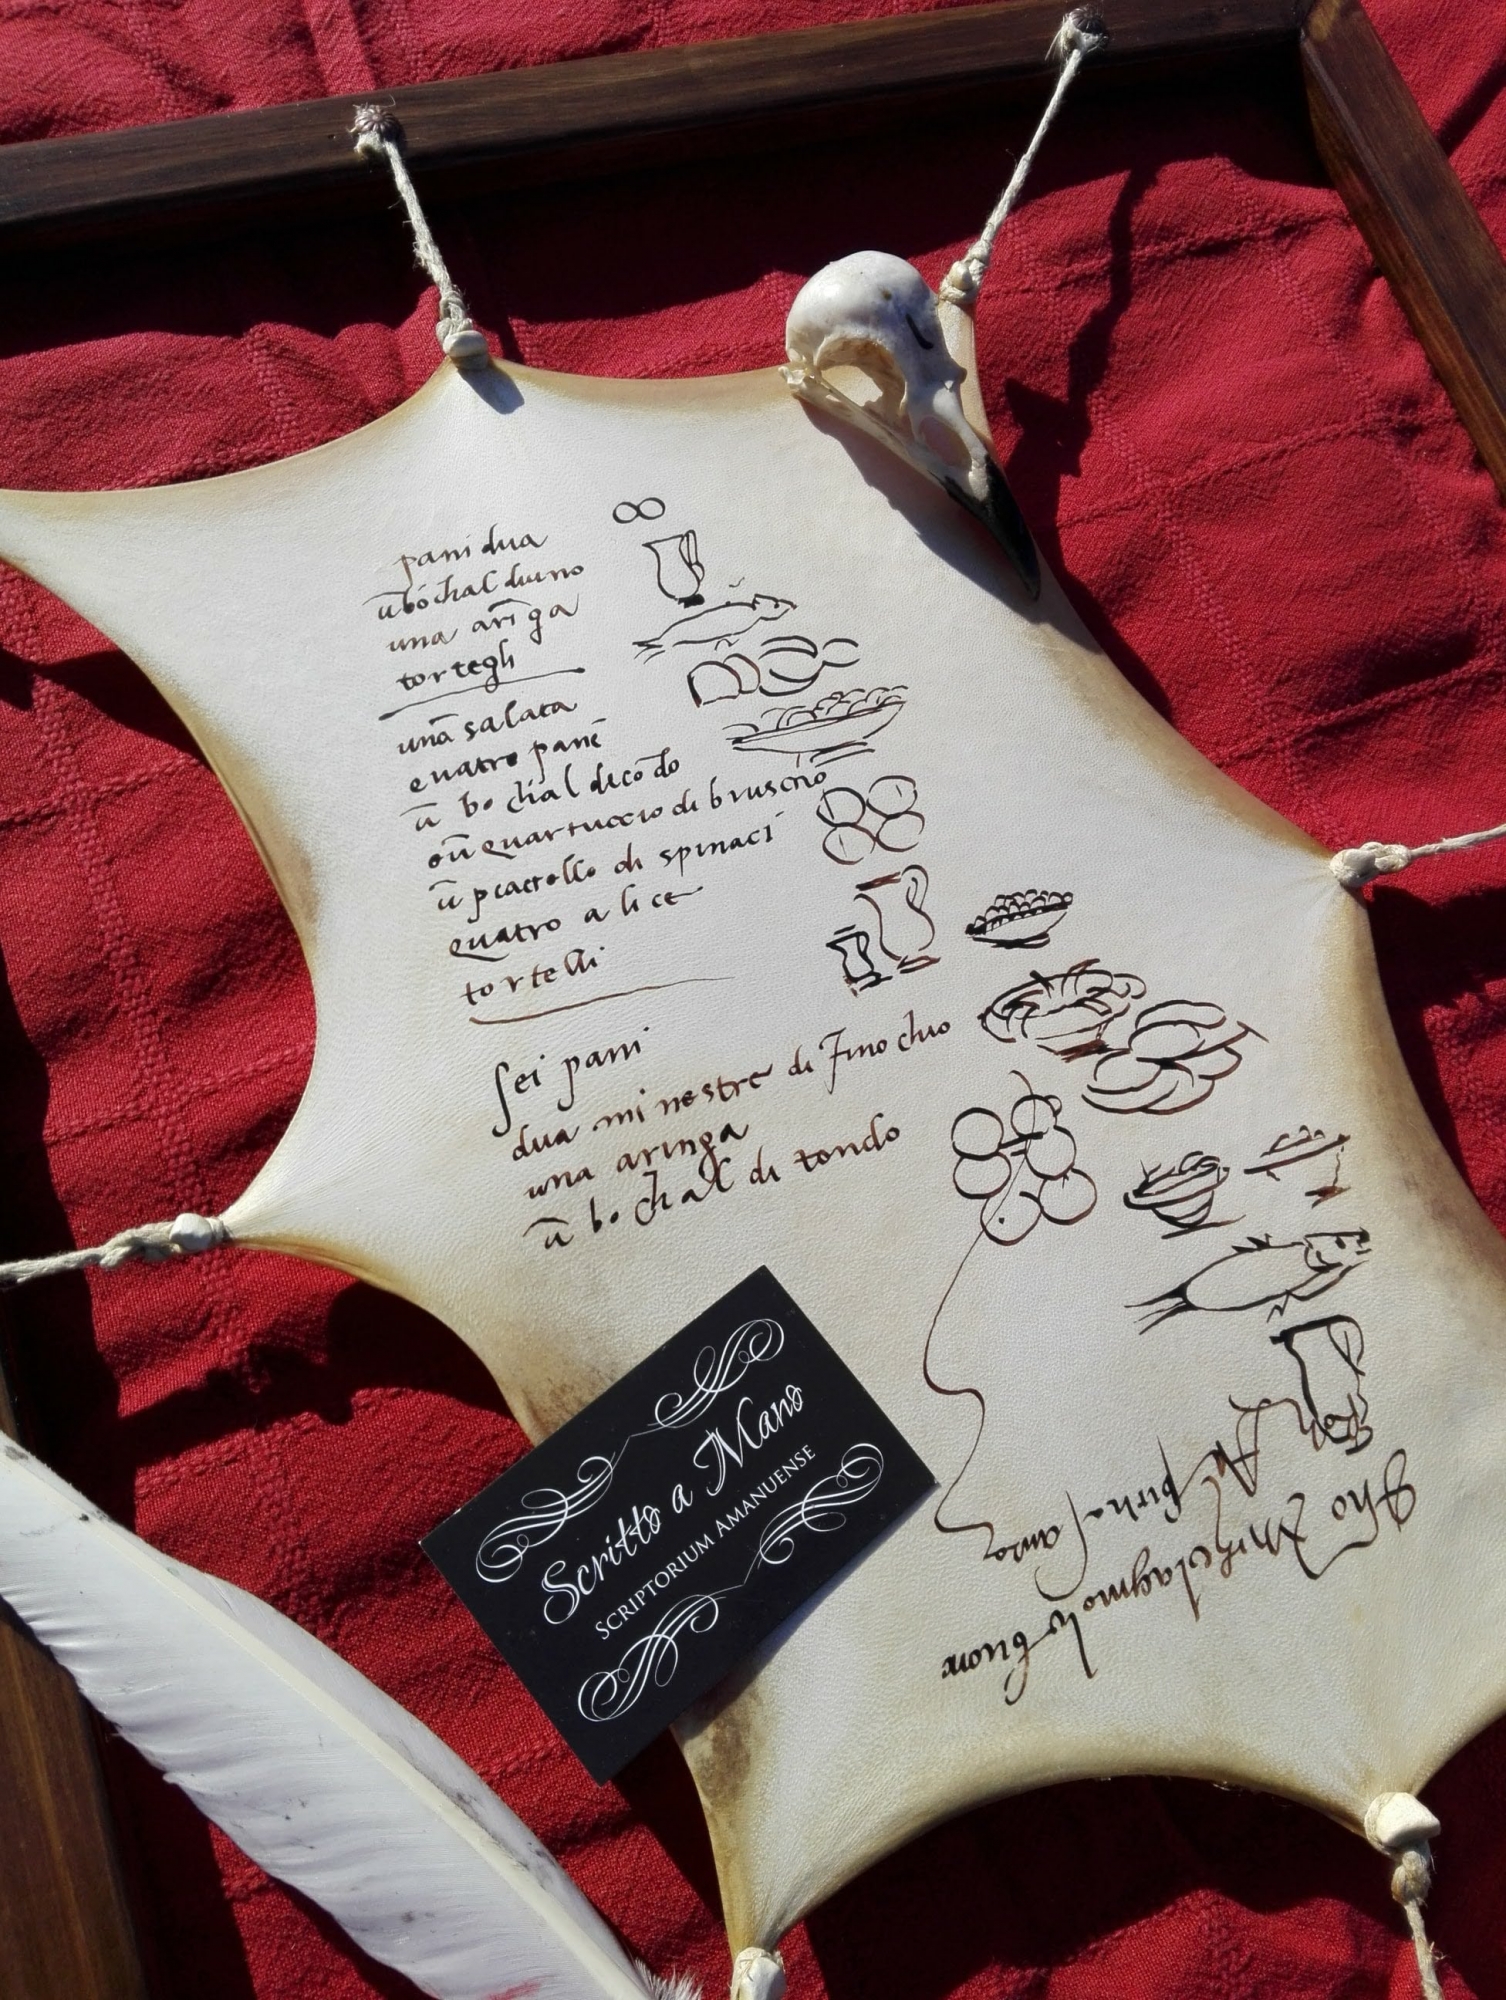 pani dua
ū bochal di uino
una arīga
tortegli
una salata
quatro pani
ū bochal di tōdo
e ū quartuccio di bruscho
ū piattello di spinaci
quatro alice
tortelli
sei pani
dua minestre di finochio
una aringa
ū bochal di tondo
Scritto a Mano
SCRIPTORIUM AMANUENSE